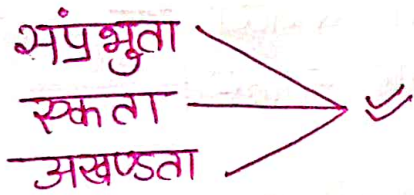 संप्रभुता
एकता
अखण्डता